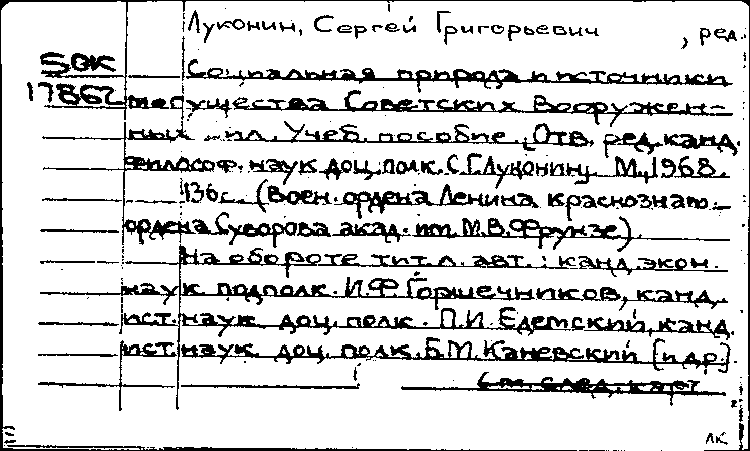 Луконин, Сергей Григорьевич, ред.
SOK Социальная природа и источники
17862 могущества Советских Вооружен-
ных сил. Учеб. пособие. [Отв. ред. канд.
философ. наук доц. полк. С.Г. Луконин]. М., 1968.
136с. (Воен. ордена Ленина краснознам.
ордена Суворова акад. им. М.В. Фрунзе).
На обороте тит. л. авт.: канд. экон.
наук подполк. И.Ф. Горшечников, канд.
ист. наук доц. полк. П.И. Едемский, канд.
ист. наук доц. полк. Б.М. Каневский [и др.]
См. след. карт
ЛК